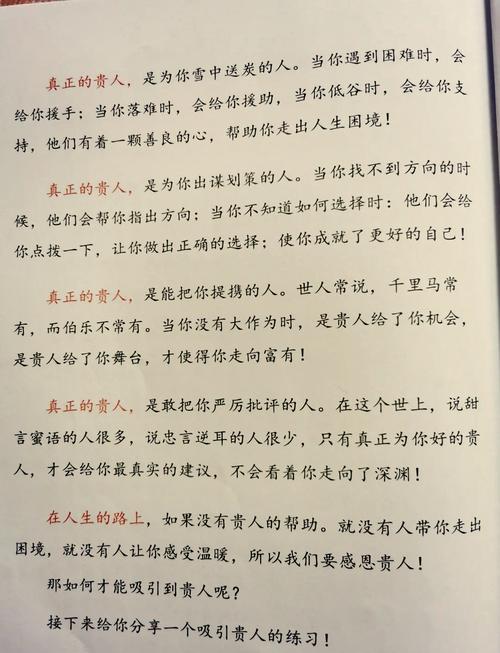 真正的贵人，是为你雪中送炭的人。当你遇到困难时，会
给你援手；当你落难时，会给你援助，当你低谷时，会给你支
持，他们有着一颗善良的心，帮助你走出人生困境！
真正的贵人，是为你出谋划策的人。当你找不到方向的时
候，他们会帮你指出方向；当你不知道如何选择时：他们会给
你点拨一下，让你做出正确的选择；使你成就了更好的自己！
真正的贵人，是能把你提携的人。世人常说，千里马常
有，而伯乐不常有。当你没有大作为时，是贵人给了你机会，
是贵人给了你舞台，才使得你走向富有！
真正的贵人，是敢把你严厉批评的人。在这个世上，说甜
言蜜语的人很多，说忠言逆耳的人很少，只有真正为你好的贵
人，才会给你最真实的建议，不会看着你走向了深渊！
在人生的路上，如果没有贵人的帮助。就没有人带你走出
困境，就没有人让你感受温暖，所以我们要感恩贵人！
那如何才能吸引到贵人呢？
接下来给你分享一个吸引贵人的练习！